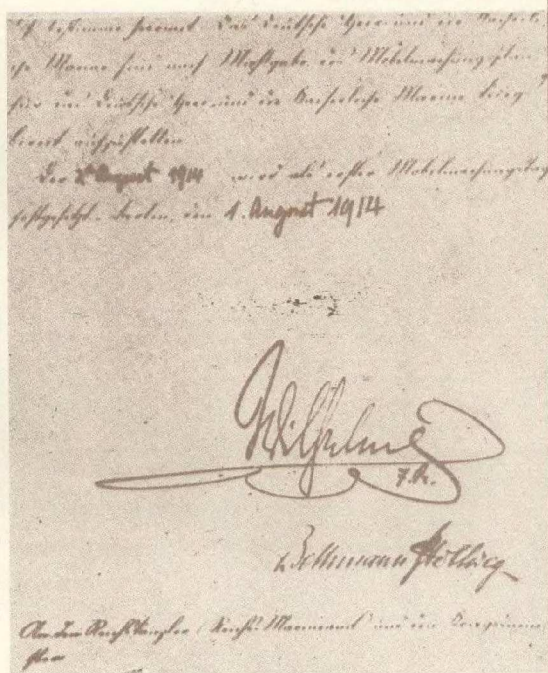 Ich bestimme hiermit: Das Deutsche Heer und die Kaiserli-
che Marine sind nach Maßgabe des Mobilmachungsplans
für das Deutsche Heer und die Kaiserliche Marine krieg
bereit aufzustellen.
Der 2. August 1914 wird als erster Mobilmachungstag
festgesetzt. Berlin, den 1. August 1914
Wilhelm
I.R.
v Bethmann Hollweg
An den Reichskanzler (Reichs-Marineamt) und den Kriegsminis-
ter